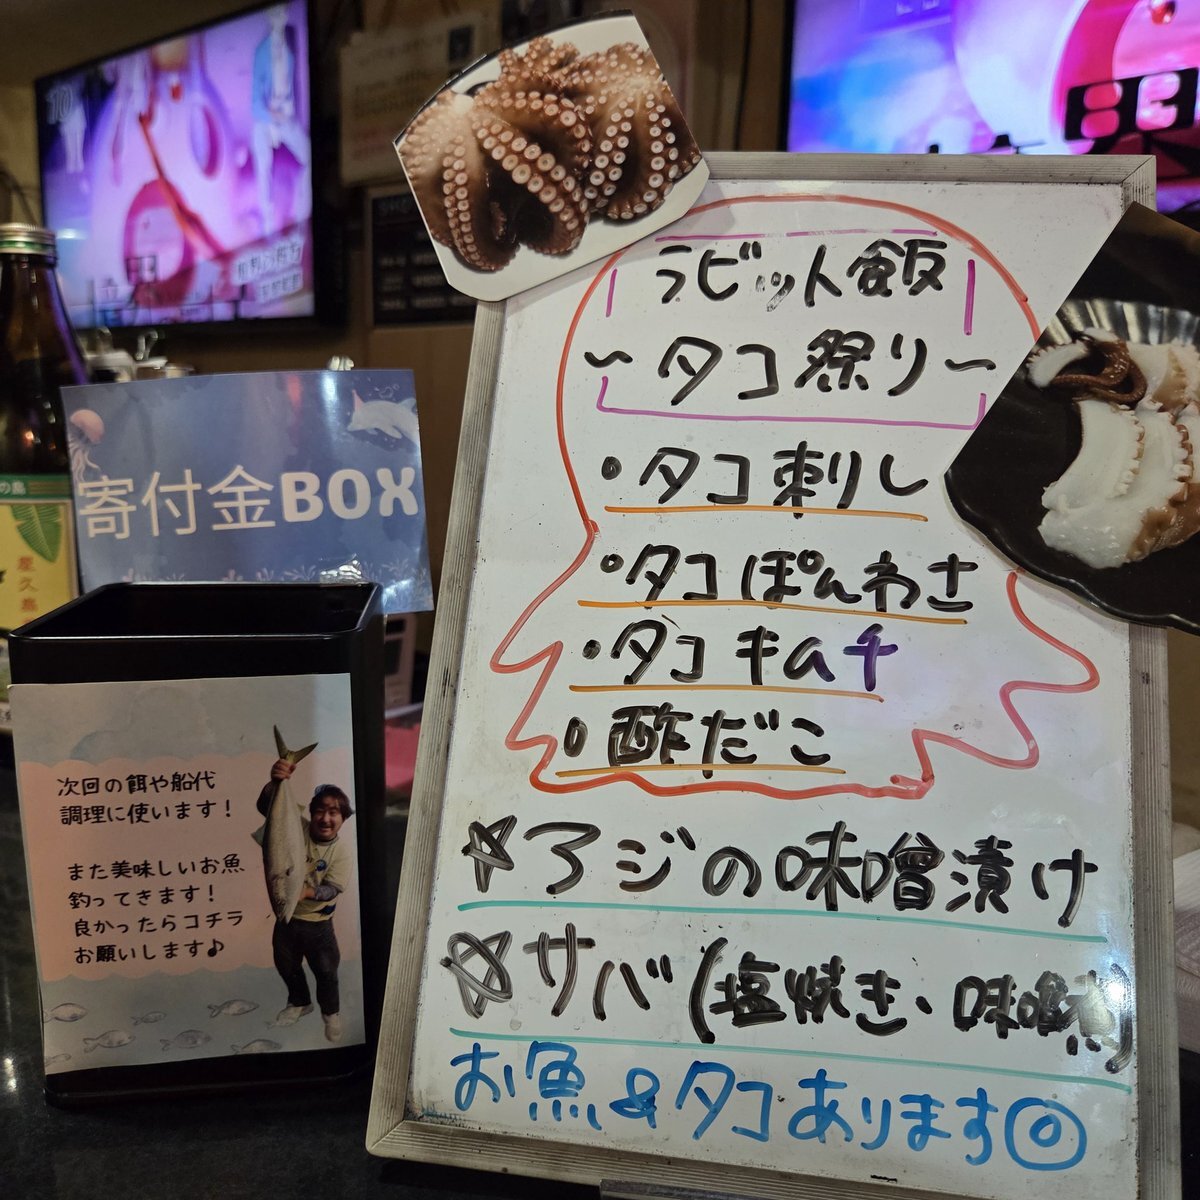 ラビット飯
~タコ祭り~
・タコ刺し
・タコぽんわさ
・タコキムチ
・酢だこ
☆アジの味噌漬け
☆サバ(塩焼き、味噌煮)
お魚&タコあります◎
寄付金BOX
次回の餌や船代
調理に使います！
また美味しいお魚
釣ってきます！
良かったらコチラ
お願いします♪
屋久島